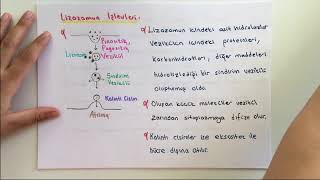 Lizozomun İşlevleri:
Pinositoz,
Fagositoz
Lizozom
Vezikül
Sindirim
Vezikülü
Kalıntı Cisim
Atılma
Lizozomun içindeki asit hidrolazlar
vezikülün içindeki proteinleri,
karbonhidratları, diğer maddeleri
hidrolizlediği bir sindirim vezikülü
oluşturmuş oldu.
Oluşan küçük moleküller vezikül
zarından sitoplazmaya difüze olur.
Kalıntı cisimler ise ekzositoz ile
hücre dışına atılır.